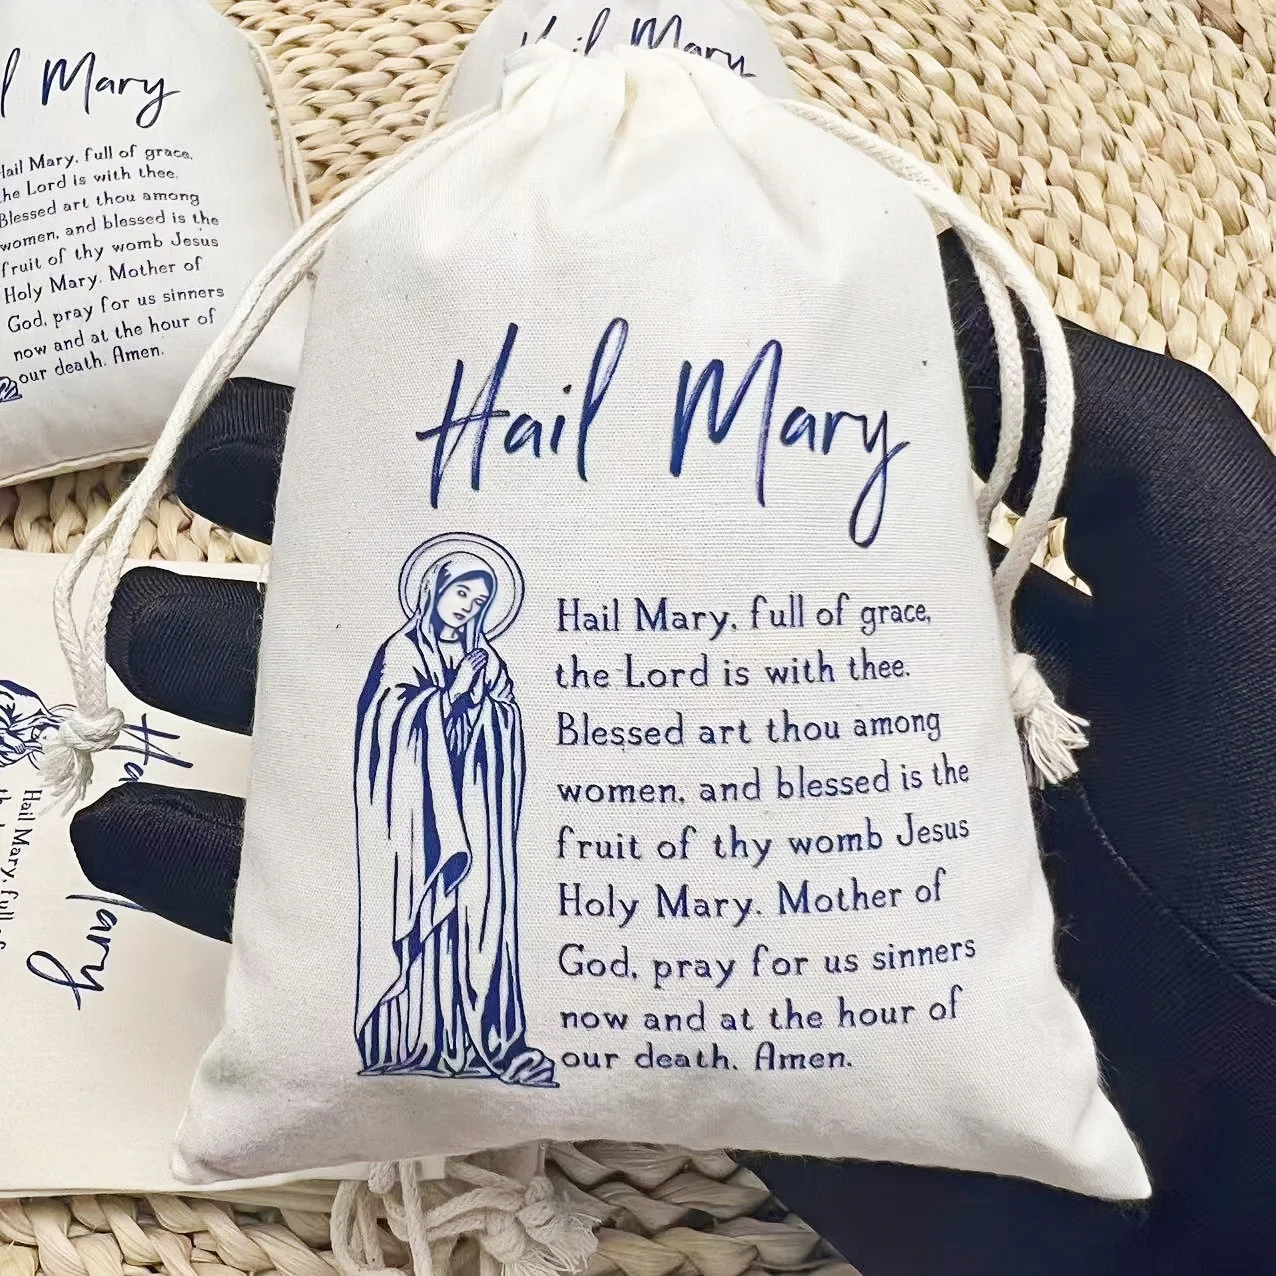 Hail Mary
Hail Mary, full of grace,
the Lord is with thee.
Blessed art thou among
women, and blessed is the
fruit of thy womb Jesus
Holy Mary. Mother of
God, pray for us sinners
now and at the hour of
our death. Amen.
Mary
Hail Mary, full of grace,
the Lord is with thee.
Blessed art thou among
women, and blessed is the
fruit of thy womb Jesus
Holy Mary. Mother of
God, pray for us sinners
now and at the hour of
our death. Amen.
Hail Mary
Hail Mary, full of